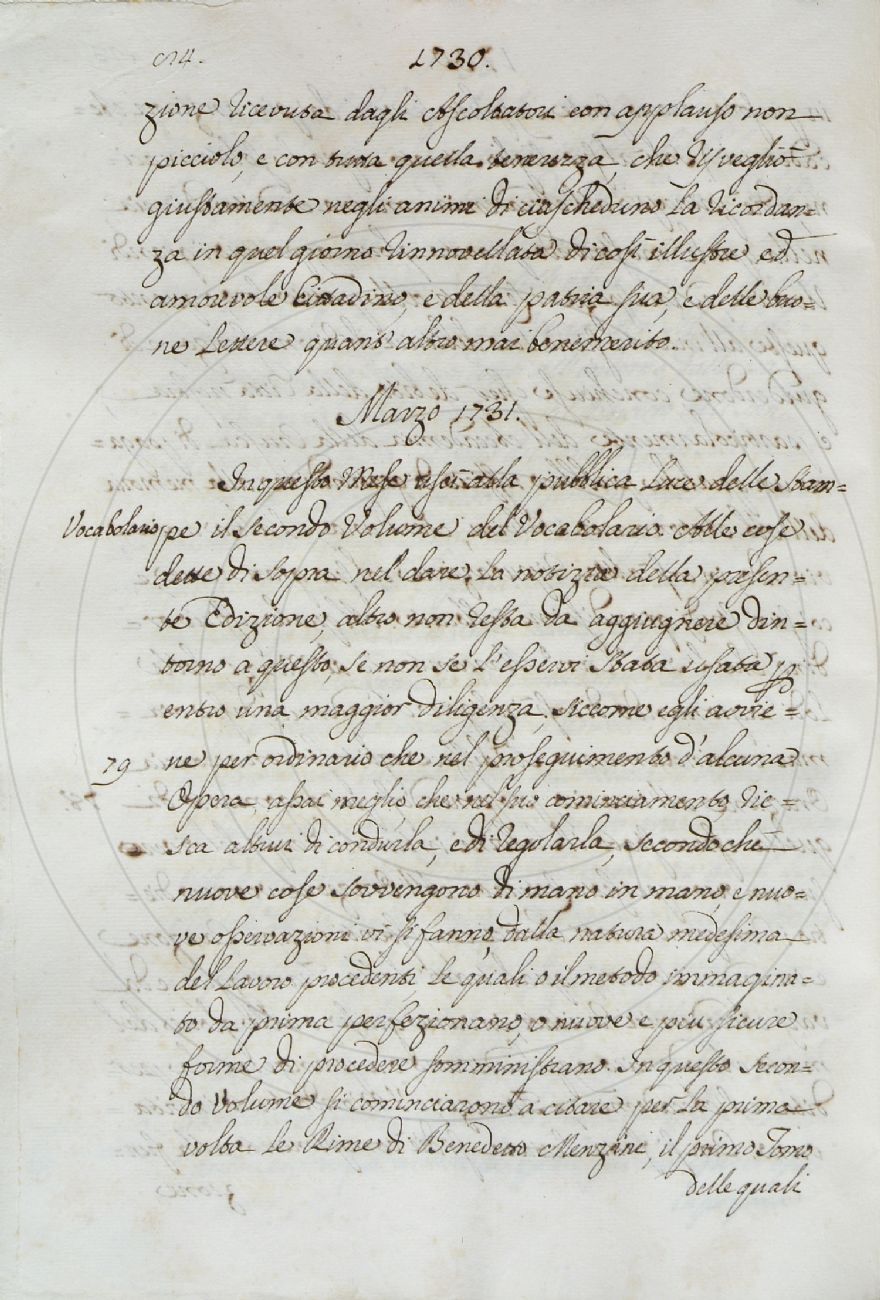 214. 1730.
zione ricevuta dagli Ascoltatori con applauso non
picciolo, e con tutta quella tenerezza, che risvegliò
giustamente negli animi di ciascheduno la ricordan=
za in quel giorno rinnovellata di così illustre ed
amorevole Cittadino, e della patria sua, e delle buo=
ne Lettere quant'altro mai benemerito.
Marzo 1731.
In questo Mese uscì alla pubblica Luce delle Stam=
Vocabolario pe il secondo Volume del Vocabolario. Alle cose
dette di sopra nel dare la notizia della presen=
te Edizione, altro non resta da aggiugnere din=
torno a questo, se non se l'esservi stata usata p
entro una maggior diligenza, siccome egli avvie=
79 ne per ordinario che nel proseguimento d'alcuna
Opera assai meglio, che nel suo cominciamento rie=
sca altrui di condurla, e di regolarla, secondochè
nuove cose sovvengono di mano in mano, e nuo=
ve osservazioni vi si fanno, dalla natura medesima
del Lavoro procedenti le quali o il metodo immagina=
to da prima perfezionano, o nuove e più sicure
forme di procedere somministrano. In questo secon=
do Volume si cominciarono a citare per la prima
volta le Rime di Benedetto Menzini, il primo Tomo
delle quali